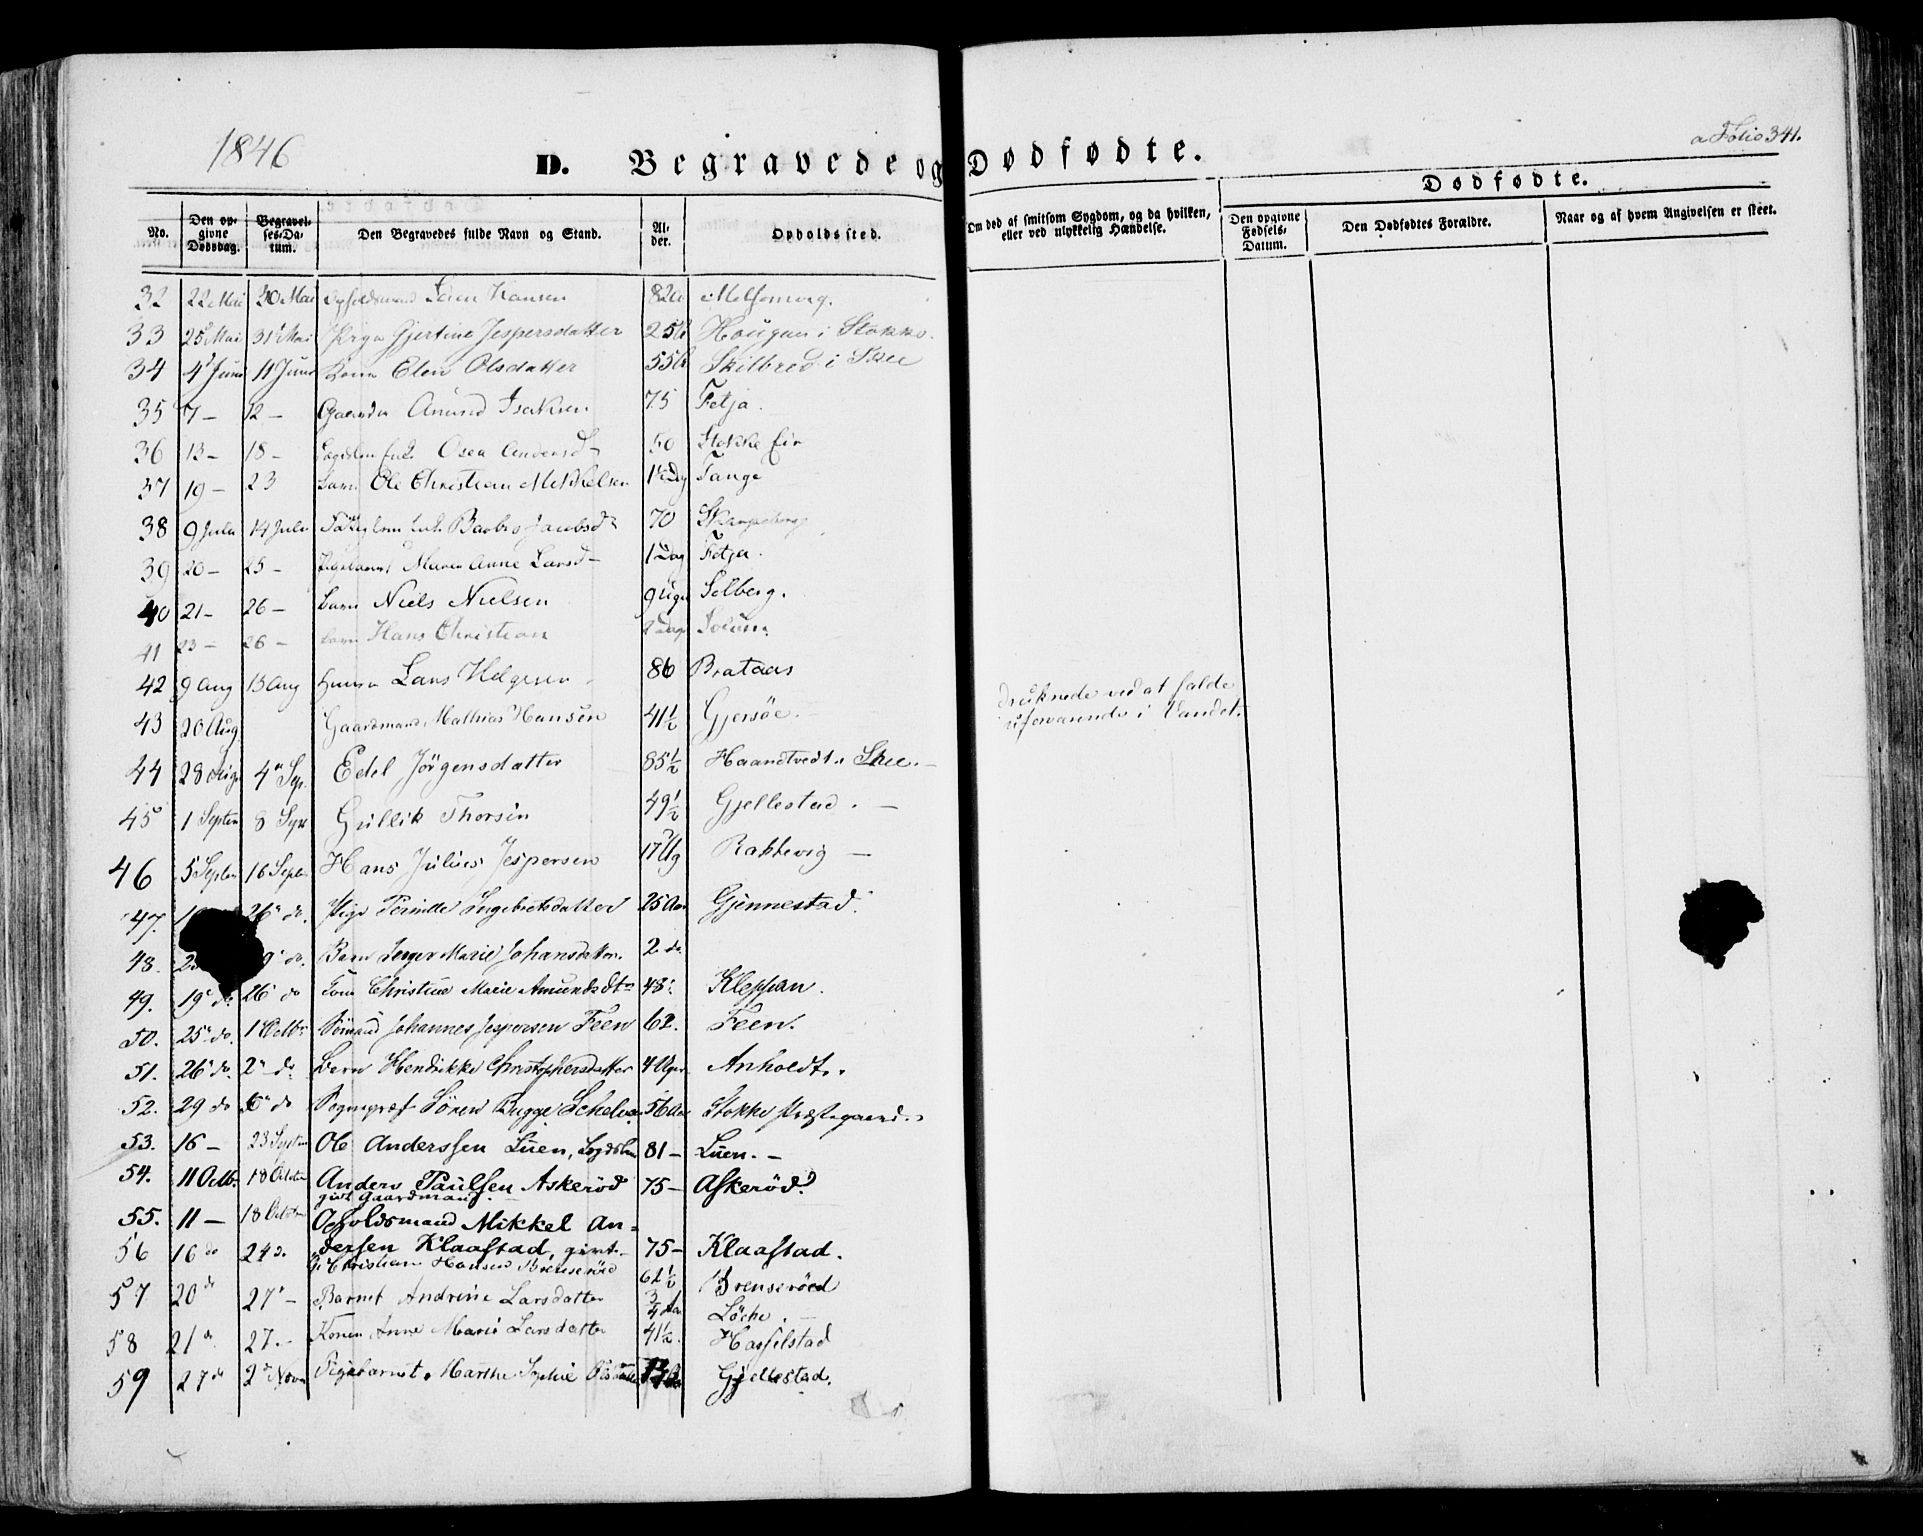 1846
D. Begravede og Dødfødte.
a Folio 341.
Dødfødte.
No.
Den opgivne Dødsdag.
Begravelses-Datum.
Den Begravedes fulde Navn og Stand.
Alder.
Opholdssted.
Om død af smitsom Sygdom, og da hvilken, eller ved ulykkelig Hændelse.
Den opgivne Fødsels-Datum.
Den Dødfødtes Forældre.
Naar og af hvem Angivelsen er skeet.
32 22 Mai 30 Mai Hansen 82 Melsomvig.
33 25 Mai 31 Mai Gjertine Jespersdatter 25 Hougan i Stokke.
34 4 Juni 11 Juni Kone Elen Olsdatter 55 Skilbred i Skee
35 7 – 12 – Anund Isaksen 75 Fetja.
36 13 – 18 – Osea Andersd– 50 Stokke Eie
37 19 – 23 Barn Ole Christian Mikkelsen Tange
38 9 Juli 14 Juli Jacobsd 70
39 20 – 25 – Pigebarnet Maren Anne Larsd– 1 Dag Fetja.
40 21 – 26 – Barn Niels Nielsen 9 Uger Solberg.
41 23 – 26 – Barn Hans Christian Dage Solum.
42 9 Aug 13 Aug Lars Helgesen 86 Brataas
43 20 Aug Gaardmand Mathias Hansen 41½ Gjersöe. druknede ved at falde
i Vandet.
44 28 Aug 4 Sep. Edel Jörgensdatter 85½ Haandtvedt i Skee.–
45 1 Septem 8 Sept Gullik Thorsen 49½ Gjellestad. –
46 5 Septem 16 Septem Hans Julius Jespersen 17 Ug Rakkevig –
47. 26 do. Pige Ingebretsdatter 25 Aar Gjennestad.
48. do. Barn Inger Marie Johansdatter. 2 do
49. 19 do 26 do Christine Marie Amundsdtr 48. Kleppan.
50. 25 do. 1 Octbr Johannes Jespersen Feen 62. Feen.
51. 26 do. 2 do Barn Hendrikke Christophersdatter 4 Uger Anholdt.
52. 29 do do Sognepræst Sören Bugge 56 Aar Stokke Præstegaard.
53. 16 – 23 Septem Ole Anderssen Luen, 81 – Luen. –
54. 11 Octb. 18 October Anders Paulsen Askeröd 75 – Askeröd.
gift Gaardmand. –
55. 11 – 18 October Opholdsmand Mikkel An=
56 16 do 24 do dersen Klaastad, givt – 75 – Klaastad.
Christian Hansen Brenseröed 62½ Brenseröed
57 20 do 27 – Barnet Andrine Larsdatter ¾ Aar Löche. –
58 21 d. 27. – Konen Anne Marie Larsdatter 41½. Hasselstad
59 27 do 2 Novr Pigebarnet Marthe Sophie Gjellestad.